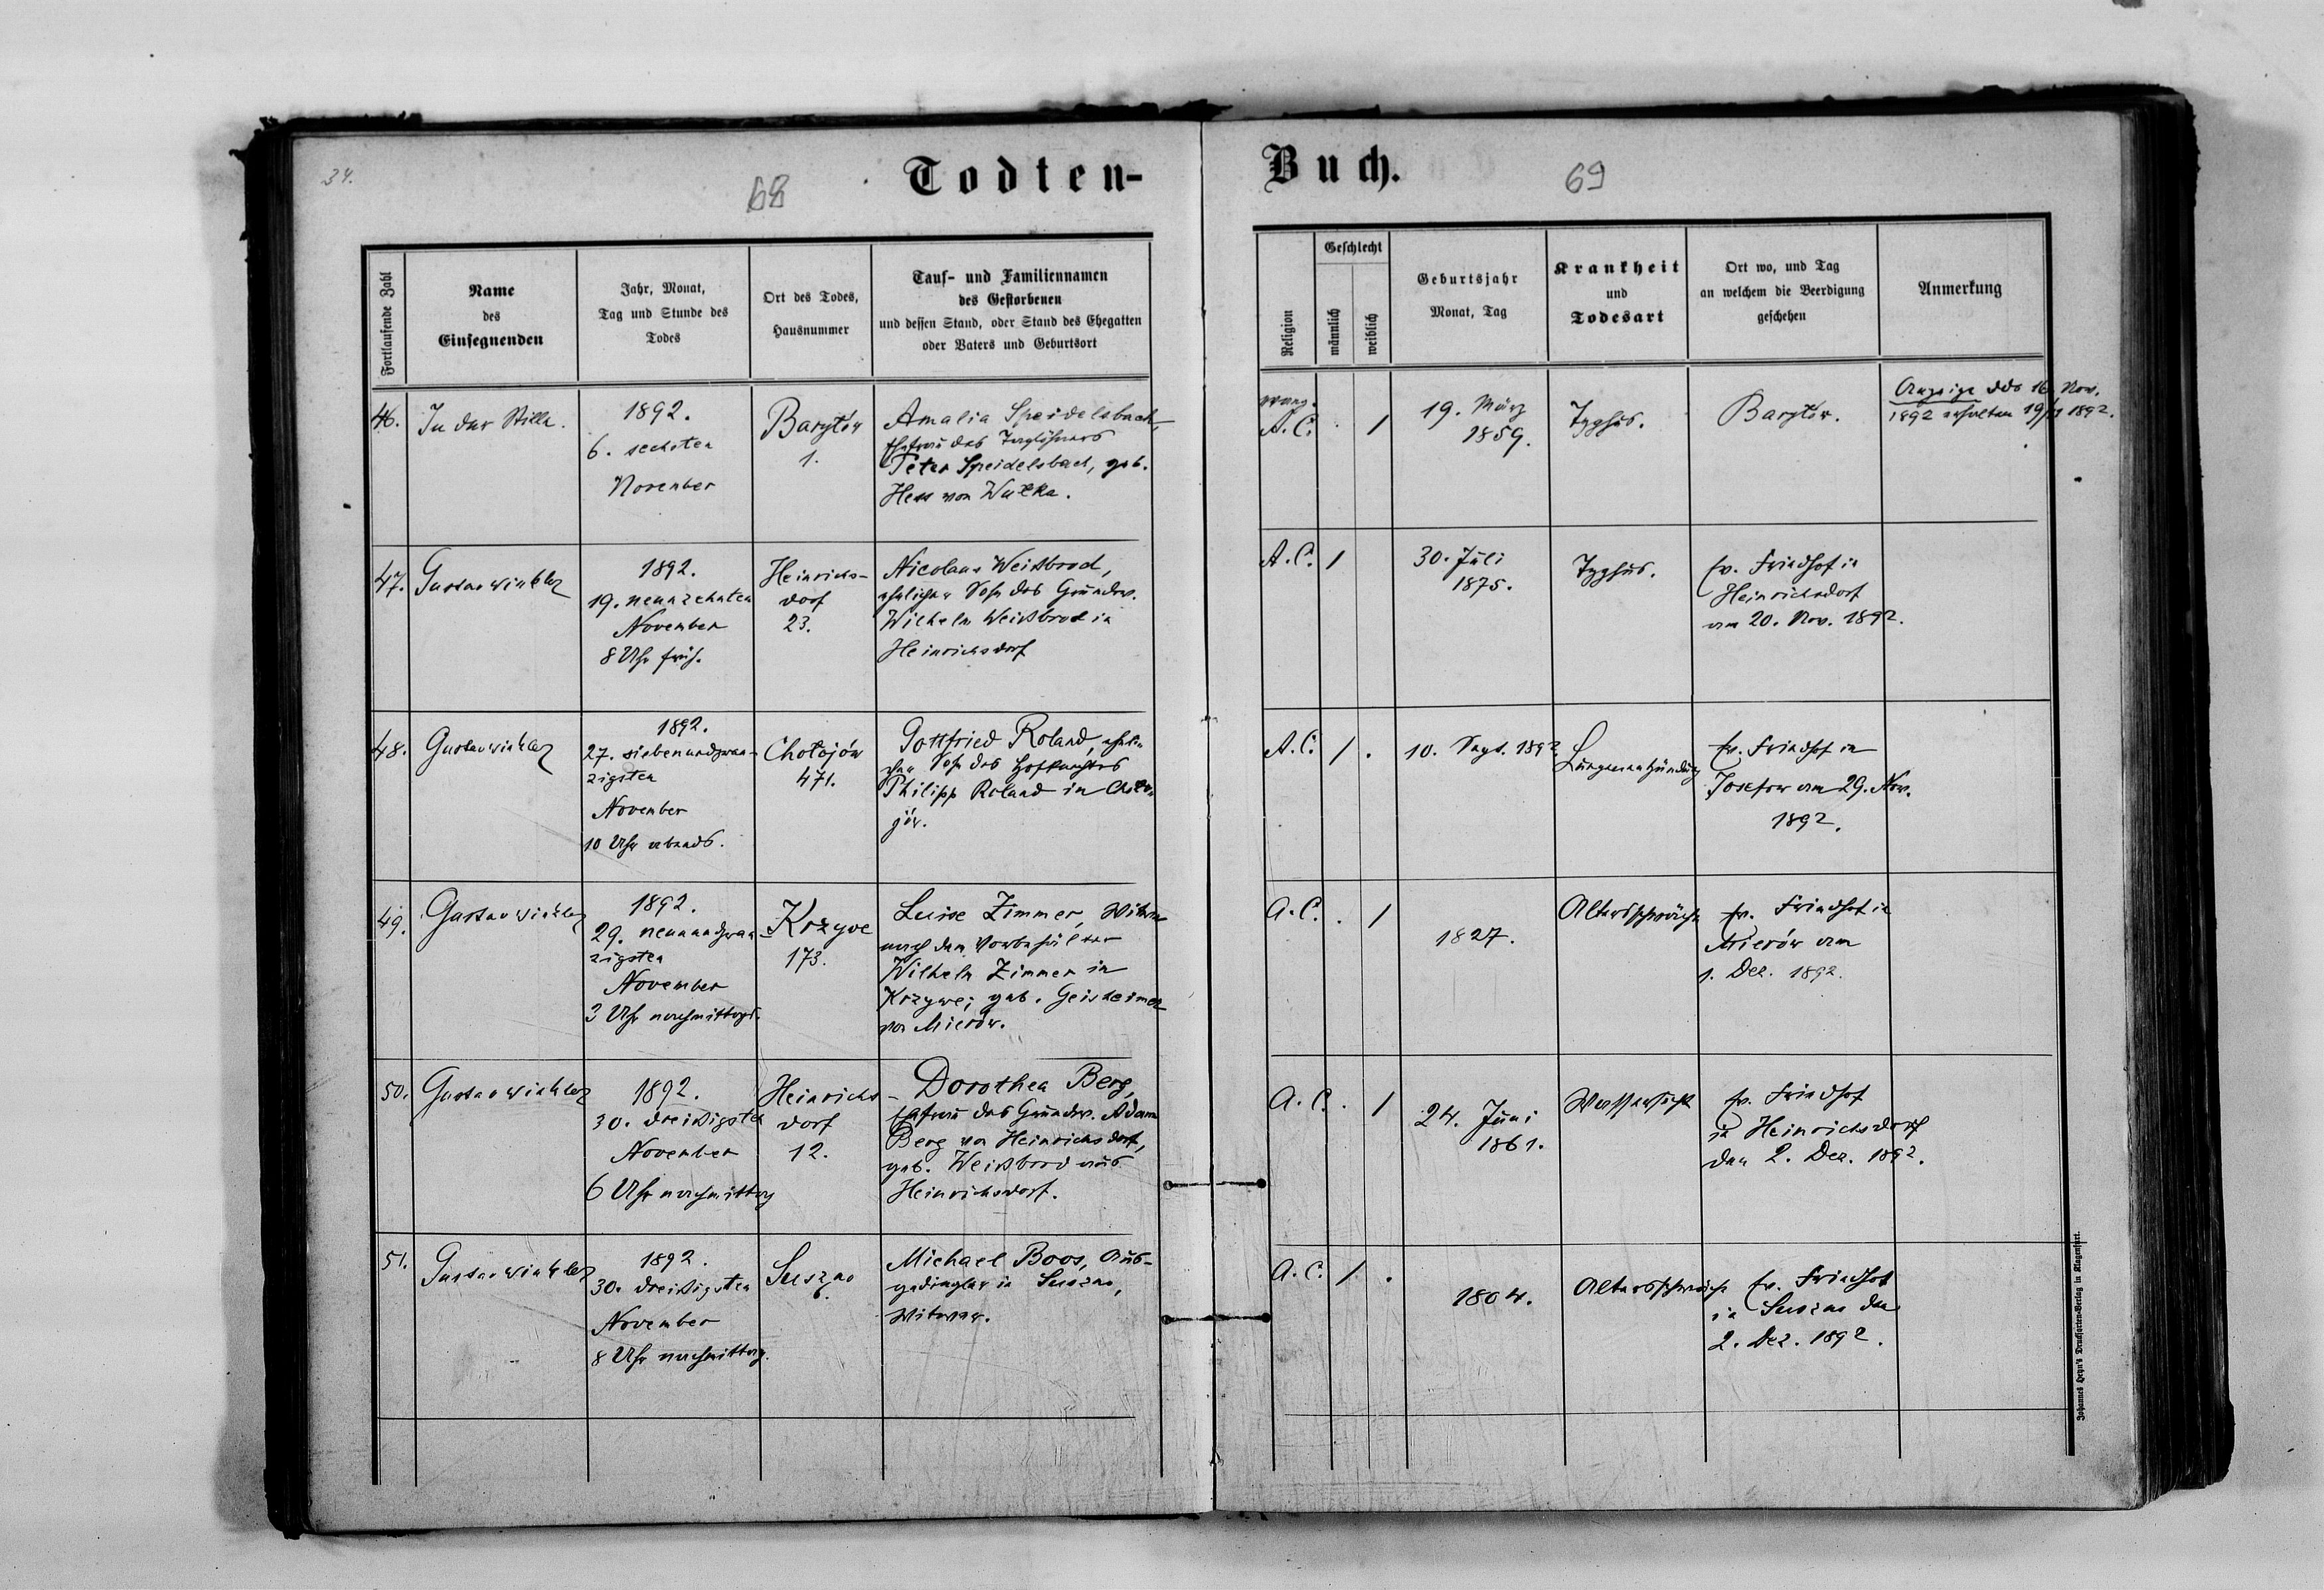 34.
68
Todten-
Fortlaufende Zahl
Name
des
Einsegnenden
Jahr, Monat,
Tag und Stunde des
Todes
Ort des Todes,
Hausnummer
Tauf- und Familiennamen
des Gestorbenen
und dessen Stand, oder Stand des Ehegatten
oder Vaters und Geburtsort
46.
In der Stille.
1892.
6. sechsten
November
Barylów
1.
Amalia Speidelsbach,
Ehefrau des Taglöhners
Peter Speidelsbach, geb.
Hess von Wulka.
47.
Gustav Winkler
1892.
19. neunzehnten
November
8 Uhr früh.
Heinrichs-
dorf
23.
Nicolaus Weißbrod,
ehelicher Sohn des Grundw.
Wilhelm Weißbrod in
Heinrichsdorf
48.
Gustav Winkler
1892.
27. siebenundzwan-
zigsten
November
10 Uhr abends.
Chołojów
471.
Gottfried Roland, eheli-
cher Sohn des Hofknechtes
Philipp Roland in Choło-
jów.
49.
Gustav Winkler
1892.
29. neunundzwan-
zigsten
November
3 Uhr nachmittags.
Krzywe
173.
Luise Zimmer, Witwe
nach dem Vorbehälter
Wilhelm Zimmer in
Krzywe; geb. Geisheimer
von Mierów.
50.
Gustav Winkler
1892.
30. dreißigsten
November
6 Uhr nachmittag
Heinrichs-
dorf
12.
Dorothea Berg,
Ehefrau des Grundw. Adam
Berg von Heinrichsdorf,
geb. Weißbrod aus
Heinrichsdorf.
51.
Gustav Winkler
1892.
30. dreißigsten
November
8 Uhr nachmittag.
Suszno
6.
Michael Boos, Aus-
gedingler in Suszno,
Witwer.
Buch.
69
Religion
Geschlecht
männlich
weiblich
Geburtsjahr
Monat, Tag
Krankheit
und
Todesart
Ort wo, und Tag
an welchem die Beerdigung
geschehen
Anmerkung
evang.
A. C. . /
19. März
1859.
Typhus.
Barylów.
Anzeige ddo 16. Nov.
1892 erhalten 19/11 1892.
A. C. /
30. Juli
1875.
Typhus.
ev. Friedhof in
Heinrichsdorf
am 20. Nov. 1892.
A. C. / .
10. Sept. 1892.
Lungenentzündung
ev. Friedhof in
Josefow am 29. Nov.
1892.
A. C. . /
1827.
Altersschwäche
ev. Friedhof in
Mierów am
1. Dez. 1892.
A. C. . /
24. Juni
1861.
Wassersucht
ev. Friedhof
in Heinrichsdorf
den 2. Dez. 1892.
A. C. / .
1804.
Altersschwäche
ev. Friedhof
in Suszno den
2. Dez. 1892.
Johannes Heyn's Drucksorten-Verlag in Klagenfurt.